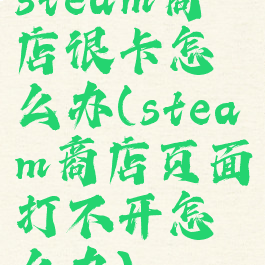 steam商
店很卡怎
么办(stea
m商店页面
打不开怎
么办)